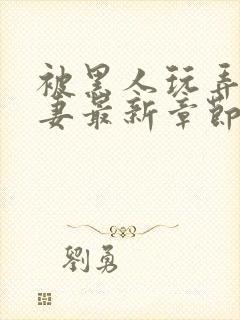 被黑人玩弄
妻最新章節
劉勇